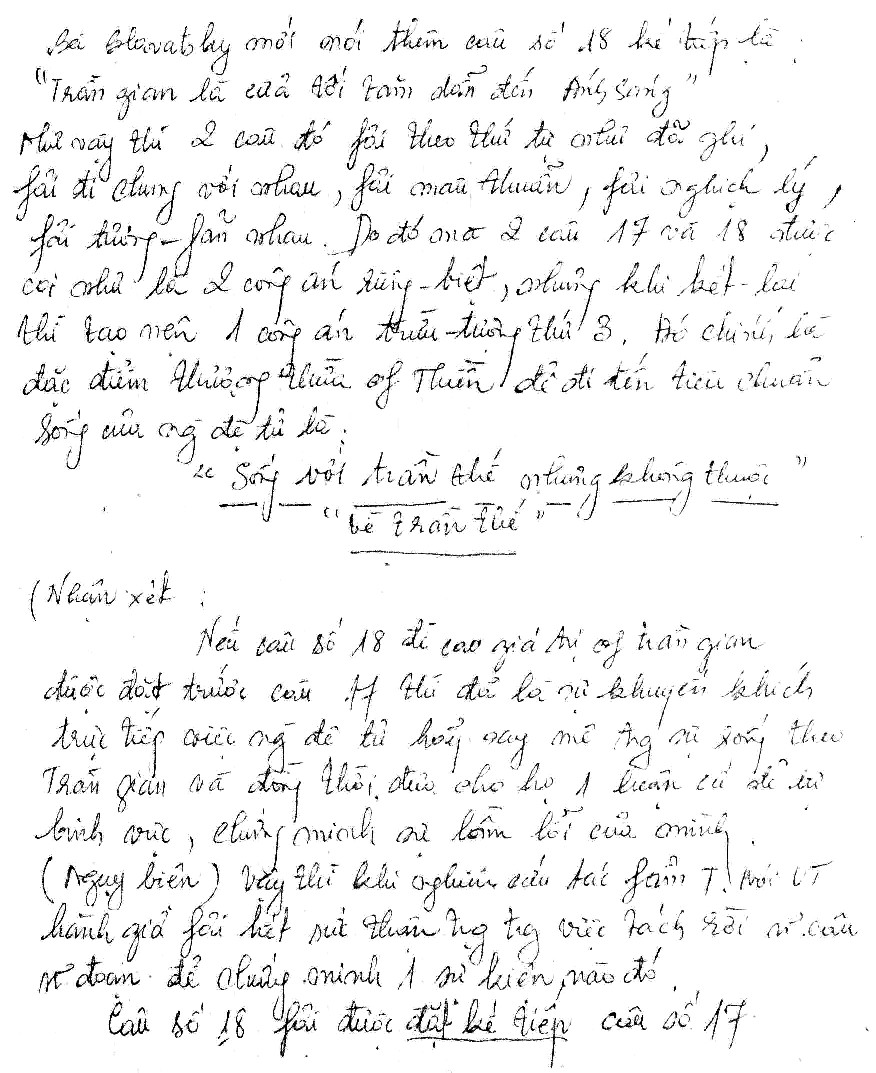 Bà Blavatsky mới nói thêm câu số 18 kế tiếp là :
"Trần gian là cửa tối tăm dẫn đến Ánh Sáng"
Như vậy thì 2 câu đó fải theo thứ tự như đã ghi,
fải đi chung với nhau, fải mâu thuẫn, fải nghịch lý,
fải tương-fản nhau. Do đó mà 2 câu 17 và 18 được
coi như là 2 công án riêng-biệt, nhưng khi kết-lại
thì tạo nên 1 công án trừu-tượng thứ 3. Đó chính là
đặc điểm thượng thừa of Thiền để đi đến tiêu chuẩn
Sống của ng đệ tử là :
"Sống với trần thế nhưng không thuộc"
"về trần thế"
(Nhận xét :
Nếu câu số 18 đề cao giá trị of trần gian
được đặt trước câu 17 thì đó là sự khuyến khích
trực tiếp việc ng đệ tử hãy say mê tng sự sống theo
Trần gian và đồng thời đưa cho họ 1 luận cứ để tự
binh vực, chứng minh sự lầm lỗi của mình
(Ngụy biện) Vậy thì khi nghiên cứu tác fẩm T. Nói VT
hành giả fải hết sức thận tng tng việc tách rời n~ câu
n~ đoạn để chứng minh 1 sự kiện nào đó
Câu số 18 fải được đặt kế tiếp câu số 17.